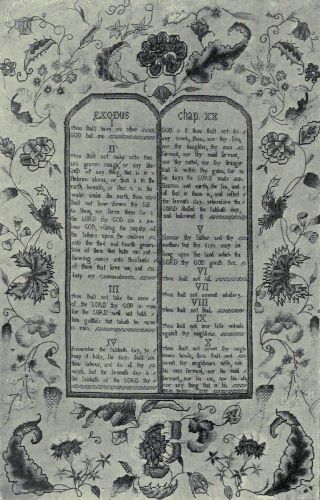 EXODUS
thou shalt have no other
GOD but me
II
Thou shalt not make unto thee
any graven image, or any like
ness of any thing that is in
Heaven above, or that is in the
earth beneath, or that is in the
water under the earth, thou
shalt not bow down thy self
to them, nor serve them for I
the LORD thy GOD am a jea
lous GOD, visiting the iniquity of
the fathers upon the children
unto the third and fourth gener
ation of them that hate me, and
shewing mercy unto thousands
of them that love me, and
keep my Commandments
III
Thou shalt not take the name
of the LORD thy GOD in vain
for the LORD will not hold
him guiltless that taketh his name
in vain
IV
Remember the Sabbath day, to
keep it holy, Six days shalt
thou labour, and do all thy
work, but the seventh day is
the Sabbath of the LORD thy
chap. XX
GOD in it thou shalt not do
any work, thou, nor thy son,
nor thy daughter, thy man
servant, nor thy maid servant,
nor thy cattle, nor thy stranger
that is within thy gates, for in
Six days the LORD made
Heaven and earth, the sea, and
all that in them is, and rested
the seventh day, wherefore the
LORD blessed the Sabbath day,
and hallowed it
V
Honour thy father and thy
mother that thy days may be
long upon the land which the
LORD thy GOD giveth thee
VI
thou shalt not kill
VII
thou shalt not commit adultery
VIII
thou shalt not steal
IX
thou shalt not bear false witness
against thy neighbour
X
thou shalt not covet thy neigh
bours house, thou shalt not
covet thy neighbours wife, nor
his man servant, nor his maid
servant, nor his ox, nor his ass
nor any thing that is his